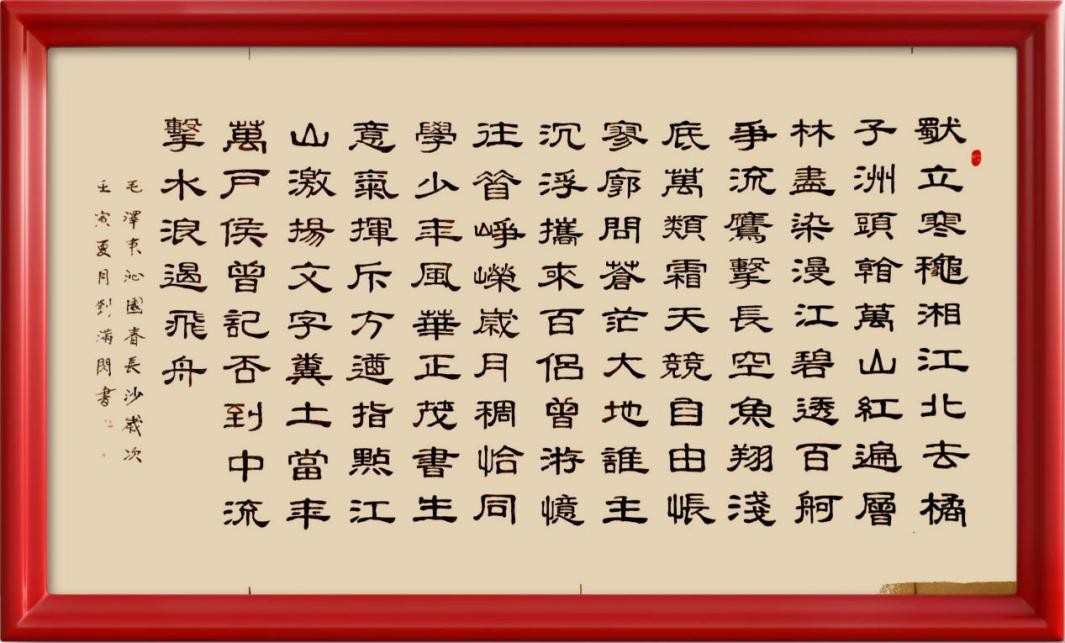 獨立寒龝湘江北去橘
子洲頭看萬山紅遍層
林盡染漫江碧透百舸
爭流鷹擊長空魚翔淺
底萬類霜天競自由悵
寥廓問蒼茫大地誰主
沉浮攜來百侶曾游憶
往昔崢嶸歲月稠恰同
學少年風華正茂書生
意氣揮斥方遒指點江
山激揚文字糞土當年
萬戶侯曾記否到中流
擊水浪遏飛舟
毛澤東沁園春長沙歲次
壬寅夏月劉滿閃書